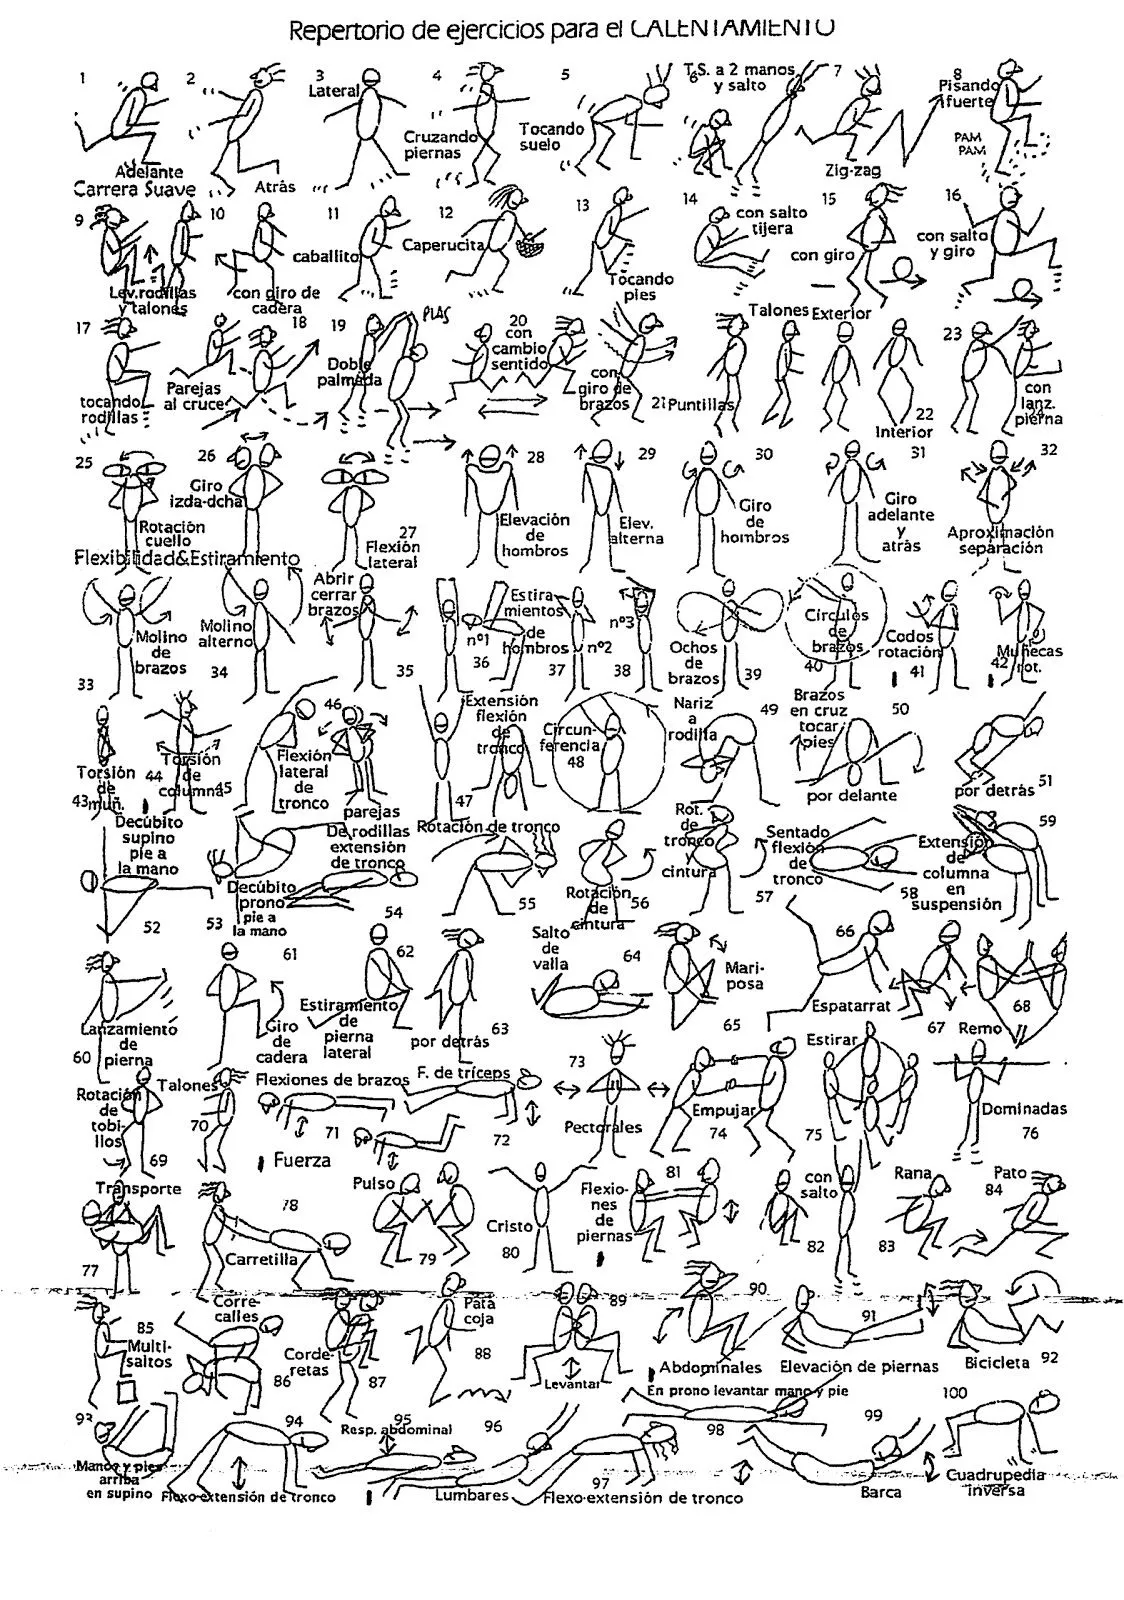 Repertorio de ejercicios para el CALENTAMIENTO
1
2
3
Lateral
4
Cruzando
piernas
5
Tocando
suelo
6
T.S. a 2 manos
y salto
7
Zig-zag
8
Pisando
fuerte
PAM
PAM
Adelante
Carrera Suave
Atrás
9
Lev.rodillas
y talones
10
con giro de
cadera
11
caballito
12
Caperucita
13
Tocando
pies
14
con salto
tijera
15
con giro
16
con salto
y giro
17
tocando
rodillas
18
Parejas
al cruce
19
Doble
palmada
PLAS
20
con
cambio
sentido
con
giro de
brazos
21
Puntillas
Talones
Exterior
22
Interior
23
con
lanz.
pierna
24
25
Rotación
cuello
Flexibilidad&Estiramiento
26
Giro
izda-dcha
27
Flexión
lateral
28
Elevación
de
hombros
29
Elev.
alterna
30
Giro
de
hombros
31
Giro
adelante
y
atrás
32
Aproximación
separación
33
Molino
de
brazos
34
Molino
alterno
35
Abrir
cerrar
brazos
Estira-
mientos
de
hombros
nº1
36
37
nº2
nº3
38
Ochos
de
brazos
39
Círculos
de
brazos
40
Codos
rotación
41
42
Muñecas
rot.
Torsión
de
43 muñ.
44
Torsión
de
columna
45
46
Flexión
lateral
de
tronco
parejas
Extensión
flexión
de
tronco
47
Circun-
ferencia
48
Nariz
a
rodilla
49
Brazos
en cruz
tocar
pies
50
por delante
por detrás
51
Decúbito
supino
pie a
la mano
52
53
Decúbito
prono
pie a
la mano
De rodillas
extensión
de tronco
54
Rotación de tronco
55
Rotación
de
cintura
56
Rot.
de
tronco
y
cintura
57
Sentado
flexión
de
tronco
58
Extensión
de
columna
en
suspensión
59
Lanzamiento
de
pierna
60
61
Giro
de
cadera
62
Estiramiento
de
pierna
lateral
por detrás
63
Salto
de
valla
64
Mari-
posa
65
66
Espatarrat
67
Remo
68
Rotación
de
tobi-
llos
69
Talones
70
Flexiones de brazos
71
F. de tríceps
72
73
Pectorales
Empujar
74
Estirar
75
Dominadas
76
Fuerza
Transporte
77
78
Carretilla
Pulso
79
Cristo
80
Flexio-
nes
de
piernas
81
con
salto
82
Rana
83
Pato
84
85
Multi-
saltos
Corre-
calles
86
Corde-
retas
87
Pata
coja
88
89
Levantar
90
Abdominales
91
Elevación de piernas
Bicicleta
92
93
Manos y pies
arriba
en supino
94
Flexo-extensión de tronco
95
Resp. abdominal
96
Lumbares
97
Flexo-extensión de tronco
En prono levantar mano y pie
98
99
Barca
100
Cuadrupedia
inversa